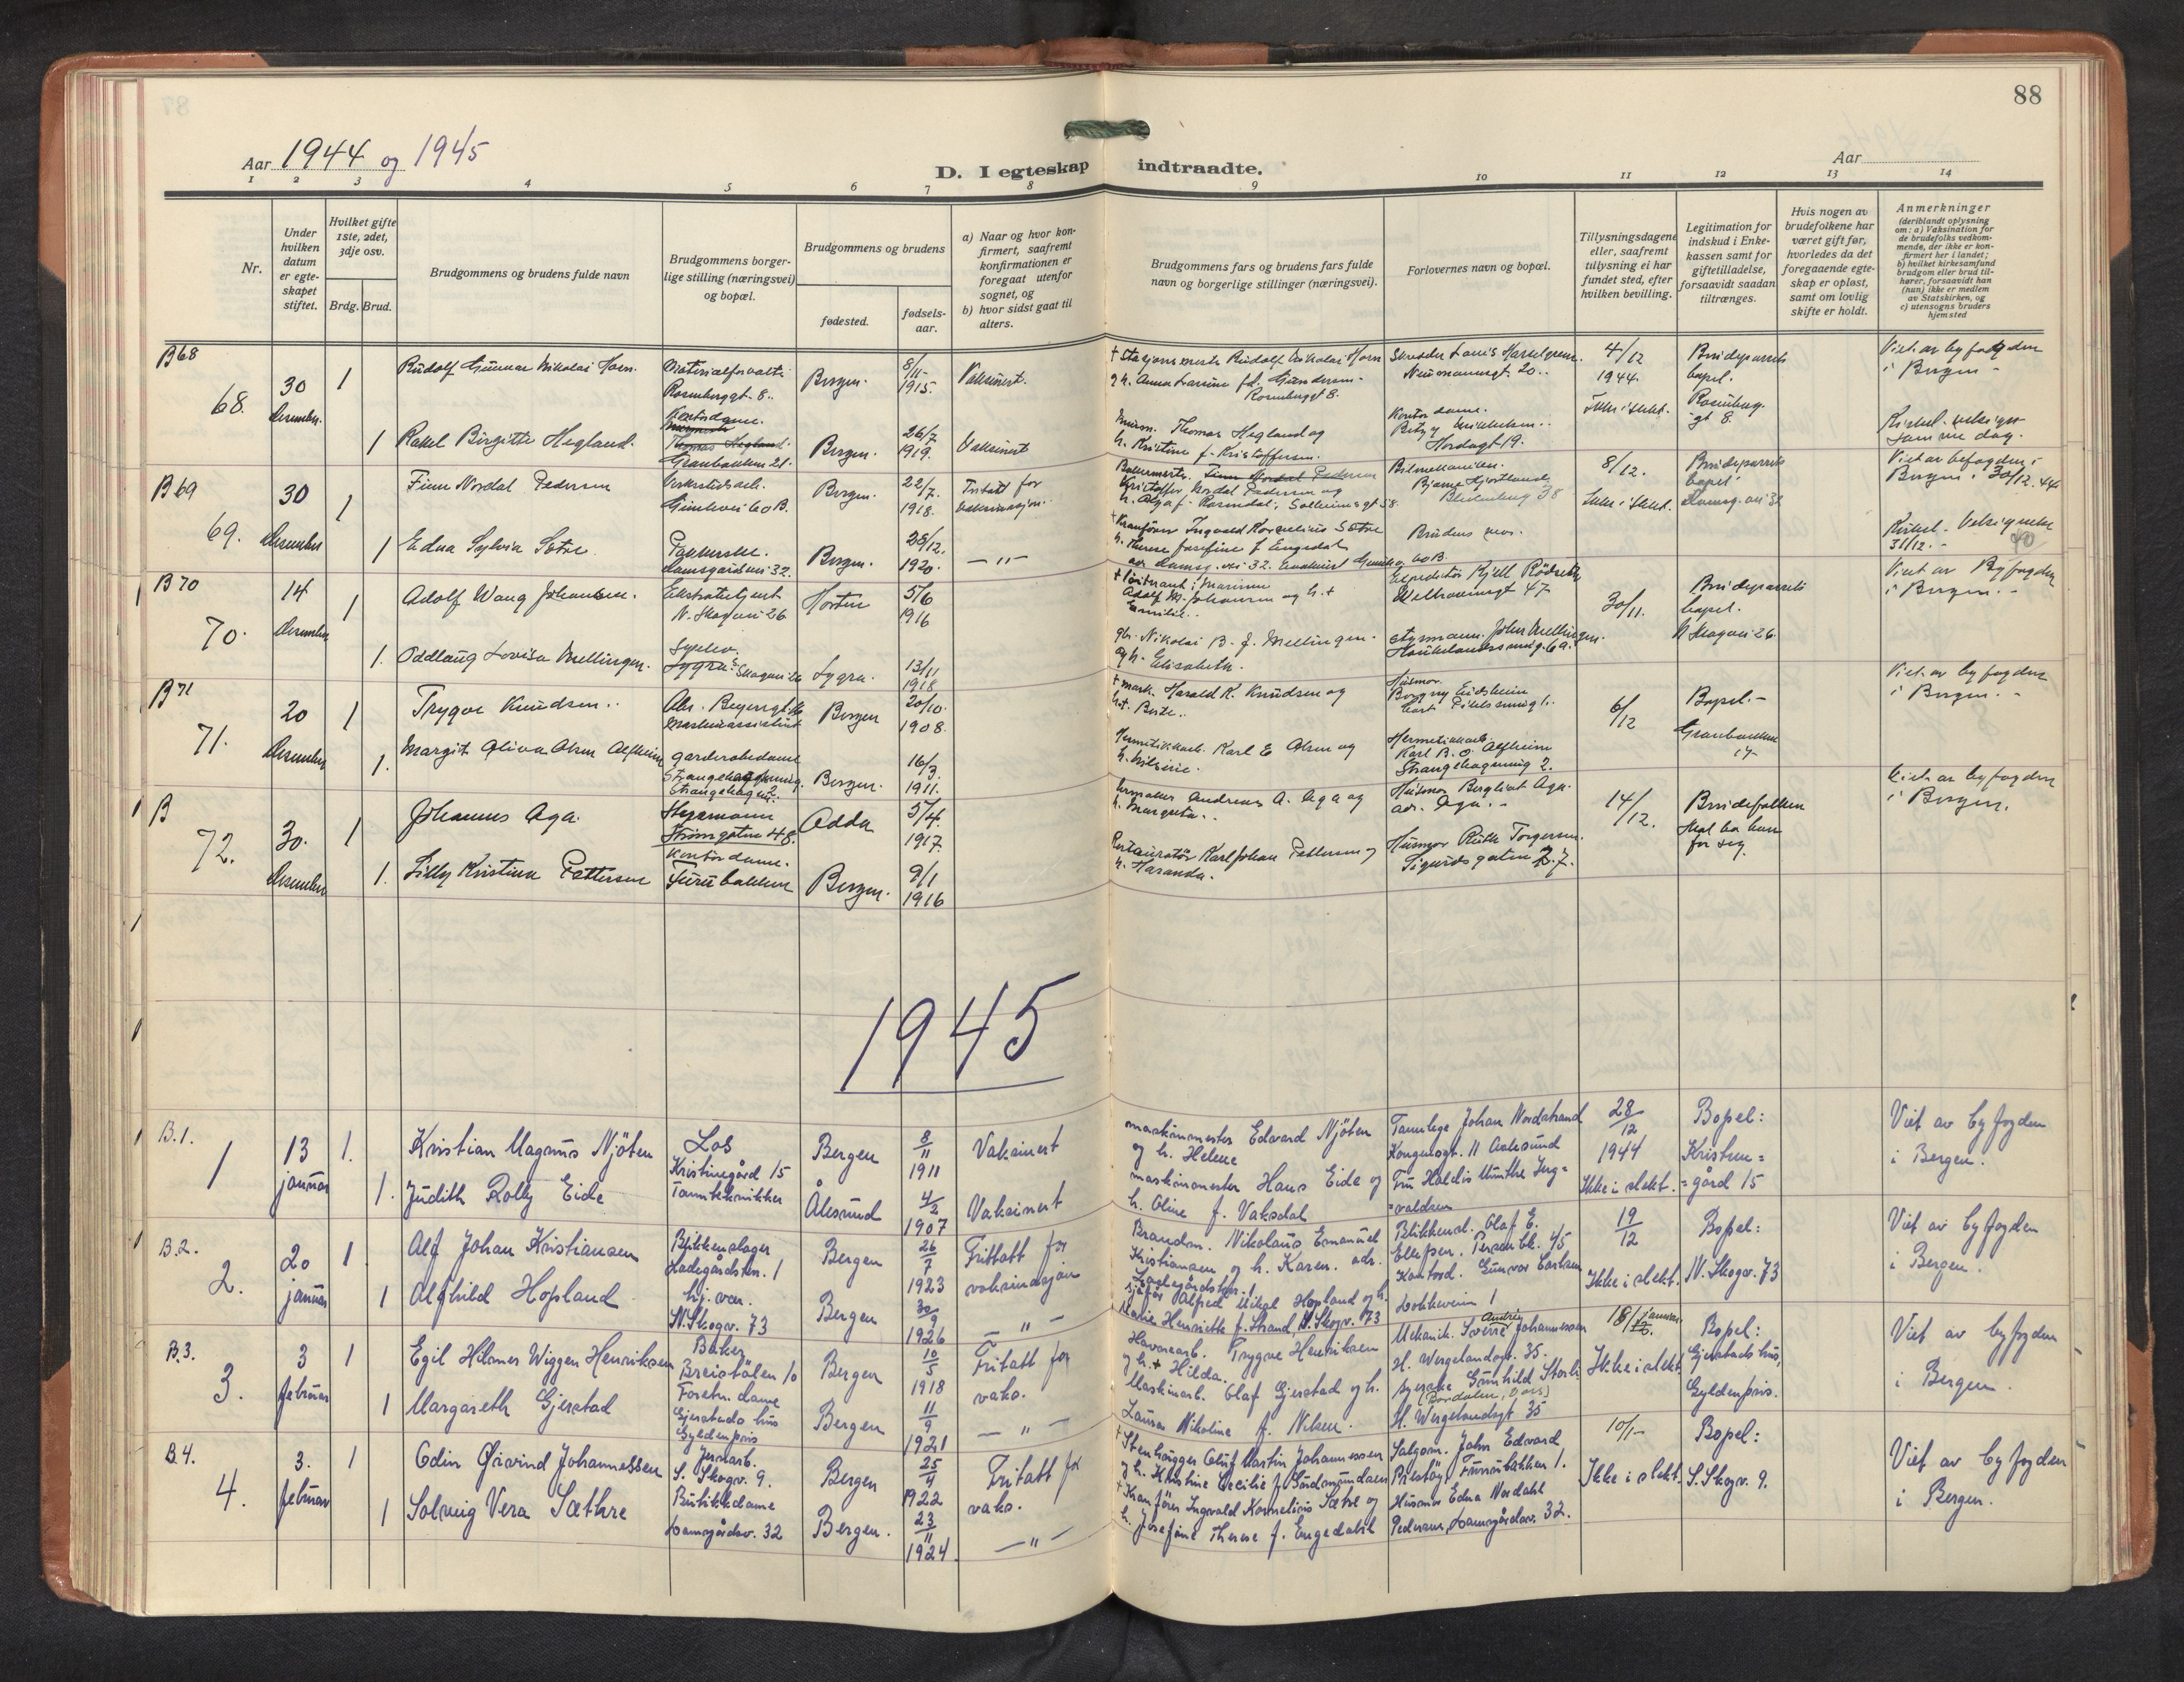 88
Aar 1944 og 1945
D. I egteskap indtraadte.
Aar
1 2 3 4 5 6 7 8 9 10 11 12 13 14
Nr.
Under hvilken datum er egte-skapet stiftet.
Hvilket gifte 1ste, 2det, 3dje osv.
Brdg. Brud.
Brudgommens og brudens fulde navn
Brudgommens borger-
lige stilling (næringsvei)
og bopæl.
Brudgommens og brudens
fødested.
fødsels-
aar.
a) Naar og hvor kon-
firmert, saafremt
konfirmationen er
foregaat utenfor
sognet, og
b) hvor sidst gaat til
alters.
Brudgommens fars og brudens fars fulde
navn og borgerlige stillinger (næringsvei).
Forlovernes navn og bopæl.
Tillysningsdagene
eller, saafremt
tillysning ei har
fundet sted, efter
hvilken bevilling.
Legitimation for
indskud i Enke-
kassen samt for
giftetilladelse,
forsaavidt saadan
tiltrænges.
Hvis nogen av
brudefolkene har
været gift før,
hvorledes da det
foregaaende egte-
skap er opløst,
samt om lovlig
skifte er holdt.
Anmerkninger
(deriblandt oplysning
om: a) Vaksination for
de brudefolks vedkom-
mende, der ikke er kon-
firmert her i landet;
b) hvilket kirkesamfund
brudgom eller brud til-
hører, forsaavidt han
(hun) ikke er medlem
av Statskirken, og
c) utensogns bruders
hjemsted
B 68
68.
30
Desember
1
Rudolf Gunnar Nikolai Horn.
Materialforvalter
Rosenberggt. 8.
Bergen.
8/11
1915.
Vaksinert.
† Stasjonsmester Rudolf Nikolai Horn
g h. Anna Larine fd. Gundersen.
Rosenberggt 8.
Neumannsgt. 20.
4/12
1944.
Ikke i slekt.
Brudeparets
bopel.
Rosenberg-
gt 8.
Viet av byfogden
i Bergen
1
Rakel Birgitte Hegland.
Kontordame.
Thomas Hegland
Granbakken 21.
Bergen.
26/7
1919.
Vaksinert
Murm. Thomas Hegland og
h. Kristine f. Kristoffersen.
Kontordame.
Hordagt 19.
Kirkel. velsignet
samme dag.
B 69
69.
30
Desember
1
Finn Nordal Pedersen
Verkstedsarb.
60 B.
Bergen.
22/7.
1918.
Fritatt for
vaksinasjon.
Bakermester. Finn Nordal Pedersen
Kristoffer Nordal Pedersen og
h. Olga f. Rosendal, Solheimsgt 58.
Bilmekaniker.
Bjarne Hjortland
38
8/12.
Ikke i slekt.
Brudeparets
bopel.
Damsg. vei 32
Viet av byfogden i
Bergen 30/12. 44
1
Edna Sylvia Sætre
Pakkerske.
Damsgårdsvei 32.
Bergen.
28/12.
1920.
— " —
† Kranfører Ingvald Kornelius Sætre
h. Terese Josefine f Engedal
Brudens mor.
Kirkel. Velsignelse
31/12.
40
B 70
70.
14
Desember
1
Adolf Wang Johansen.
N. Skogvei 26
Horten
5/6
1916
† løitnant i Marinen
Adolf M. Johansen og h. †
Emilie.
Expeditør Kjell Rødseth
Welhavensgt 47
30/11.
Brudeparets
bopel.
N Skogvei 26.
Viet av Byfogden
i Bergen.
1.
Oddlaug Lovisa Mellingen.
Lygra. N Skogvei 26
Lygra.
13/11
1918
gbr. Nikolai B. J. Mellingen.
og h. Elisabeth.
Styrmann. John Mellingen.
B 71
71.
20
Desember
1
Trygve Knudsen.
Maskinassistent
Bergen
20/10.
1908.
† mask. Harald K. Knudsen og
h. †. Berte.
Husmor.
Borgny Eidsheim
6/12
Bopel.
Granbakken
17
Viet av byfogden
i Bergen.
1.
Margit Oliva Olsen Alfheim
garderobedame
Strangehagen 2.
Bergen.
16/3.
1911.
Hermetikkarb. Karl E Olsen og
h. Milrine.
Hermetikkarb.
Karl B. O. Alfheim
Strangehagsmug 2.
B
72.
30.
Desember
1
Johannes Aga.
Styrmann
Strømgaten 48.
Odda
5/4.
1917.
Urmaker Andreas A. Aga og
h. Margreta.
Husmor Bergliot Aga.
adr. Aga.
14/12.
Brudefolken
skal bo hver
for seg.
Viet av byfogden
i Bergen.
1.
Lilly Kristina Pettersen
Kontordame.
Furubakken
Bergen.
9/1
1916
Restauratør Karl Johan Pettersen og
h. Haranda.
Husmor Ruth Torgersen.
Sigurdsgaten 7.
1945
B.1.
1
13
januar
1.
Kristian Magnus Njöten
Los
Kristinegård 15
Bergen
8/11
1911
Vaksinert
maskinmester Edvard Njöten
og h. Helene
Tannlege Johan Nordstrand
Kongensgt. 11 Aalesund
28/12
1944
Ikke i slekt.
Bopel:
Kristine=
=gård 15
Viet av byfogden
i Bergen.
1.
Judith Rolly Eide
Tanntekniker
Ålesund
4/2
1907
Vaksinert
maskinmester Hans Eide og
h. Oline f. Vaksdal
Fru Haldis Munthe Ing=
=valdsen
B.2.
2.
20
januar
1
Alf Johan Kristiansen
Blikkenslager
Ladegårdstr. 1
Bergen
26/7
1923
Frittatt for
vaksinasjon
Brandm. Nikolaus Emanuel
Kristiansen og h. Karen. adr.
Ladegårdstr. 1
Blikkensl. Olaf E.
Ellefsen. Persenbk. 45
19/12
Ikke i slekt.
Bopel:
N. Skogv. 73
Viet av byfogden
i Bergen.
1
Alfhild Hopland
hj. vær.
N. Skogv. 73
Bergen
30/9
1926
— " —
sjåfør Alfred Mikal Hopland og h.
Marie Henriette f. Strand, N. Skogv. 73
Kontord. Gunvor Carlsen
Lokkeveien 1
B.3.
3.
3
februar
1
Egil Hilmer Wiggen Henriksen
Baker
Breistölen 10
Bergen
10/5
1918
Fritatt for
vaks.
Havnearb. Trygve Henriksen
og h. † Hilda.
Mekanik. Sverre Andreas Johannessen
H. Wergelandsgt. 35.
18/ januar
Ikke i slekt
Bopel:
Gjerstads hus,
Gyldenpris.
Viet av byfogden
i Bergen.
1
Margareth Gjerstad
Forretn. dame
Gjerstads hus
Gyldenpris
Bergen
11/9
1921
— " —
Maskinarb. Olaf Gjerstad og h.
Laura Nikoline f. Nilsen.
Syerske Gunhild Storli
H. Wergelandsgt 35
B.4.
4.
3.
februar
1
Odin Øivind Johannessen
Jernarb.
S. Skogv. 9.
Bergen
25/4
1922
Fritatt for
vaks.
† Stenhugger Oluf Martin Johannessen
og h. Kristine Cecilie f. Gudmundsen
Salgsm. John Edvard
Prestöy, Furubakken 1.
10/1
Ikke i slekt.
Bopel:
S. Skogv. 9.
Viet av byfogden
i Bergen.
1
Solveig Vera Sæthre
Butikkdame
Damsgårdsv. 32
Bergen.
23/11
1924.
— " —
† Kranfører Ingvald Kornelius Sætre og
h. Josefine Therese f. Engedahl
Husmor Edna Nordahl
Pedersen, Damsgårdsv. 32.